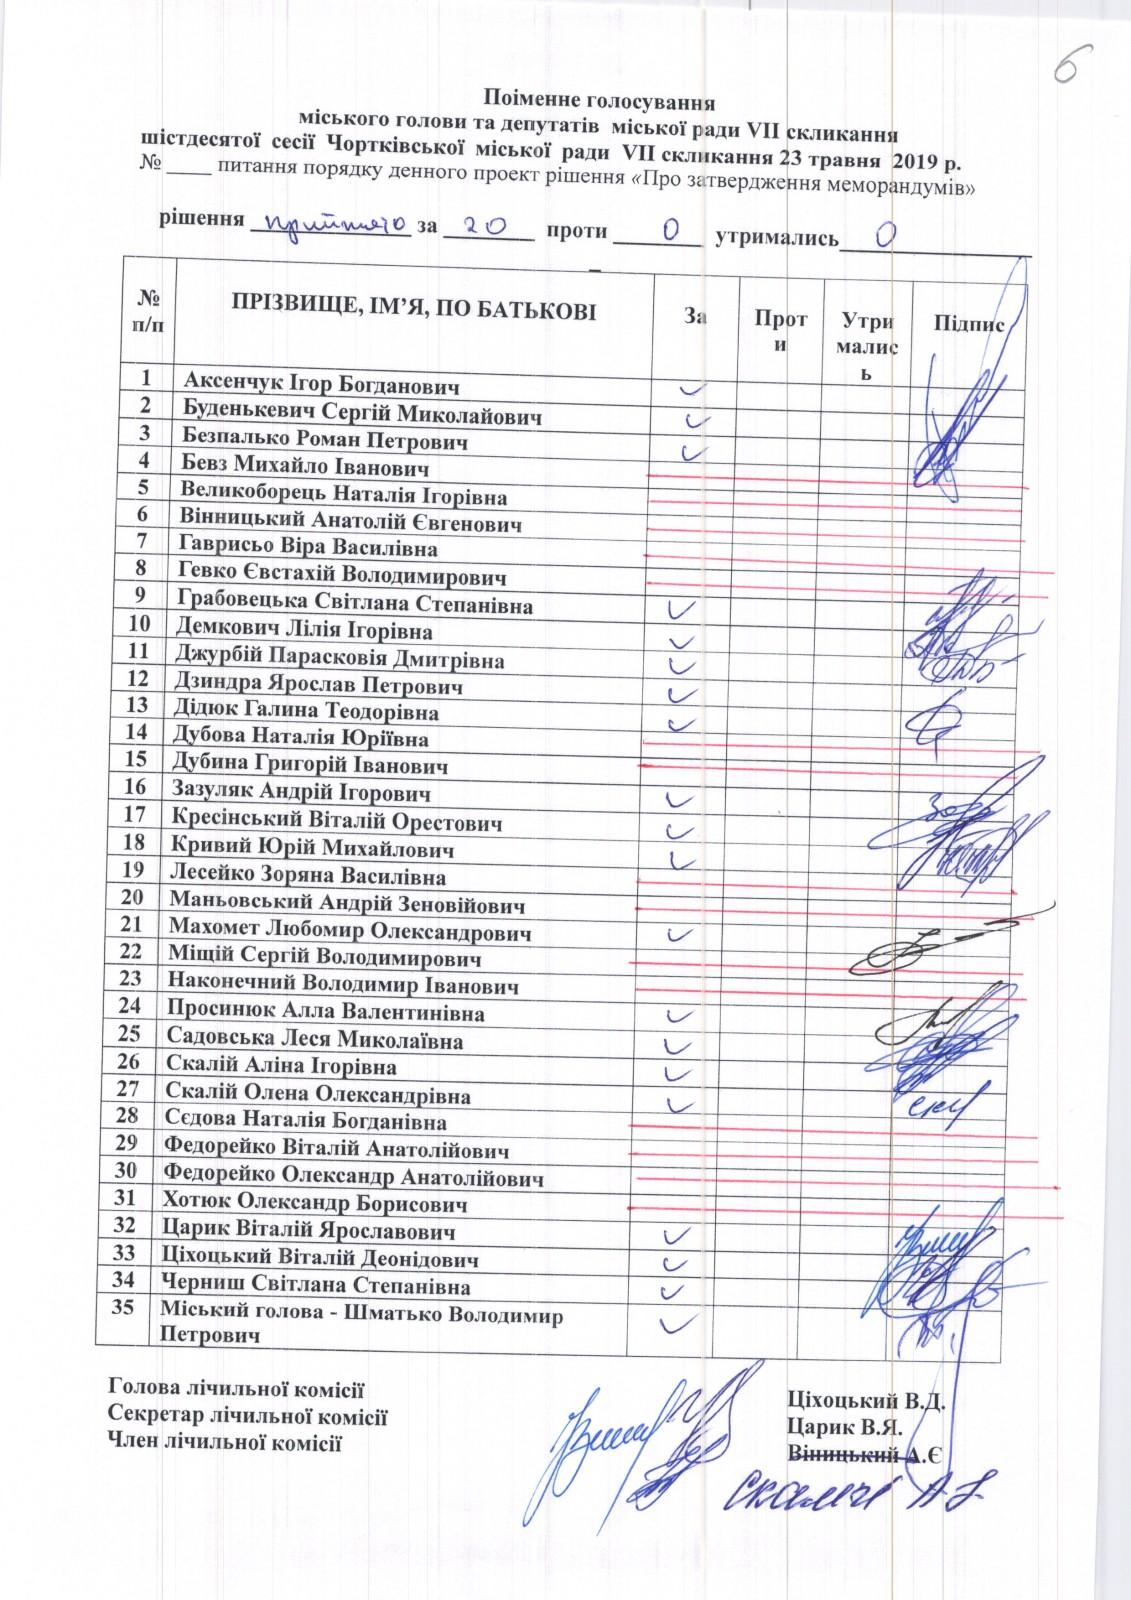 6
Поіменне голосування
міського голови та депутатів міської ради VII скликання
шістдесятої сесії Чортківської міської ради VII скликання 23 травня 2019 р.
№ ____ питання порядку денного проект рішення «Про затвердження меморандумів»
рішення прийнято за 20 проти 0 утримались 0
№ п/п ПРІЗВИЩЕ, ІМ’Я, ПО БАТЬКОВІ За Проти Утрималисть Підпис
1 Аксенчук Ігор Богданович ✓
2 Буденькевич Сергій Миколайович ✓
3 Безпалько Роман Петрович ✓
4 Бевз Михайло Іванович
5 Великоборець Наталія Ігорівна
6 Вінницький Анатолій Євгенович
7 Гаврисьо Віра Василівна
8 Гевко Євстахій Володимирович
9 Грабовецька Світлана Степанівна ✓
10 Демкович Лілія Ігорівна ✓
11 Джурбій Парасковія Дмитрівна ✓
12 Дзиндра Ярослав Петрович ✓
13 Дідюк Галина Теодорівна ✓
14 Дубова Наталія Юріївна
15 Дубина Григорій Іванович
16 Зазуляк Андрій Ігорович ✓
17 Кресінський Віталій Орестович ✓
18 Кривий Юрій Михайлович ✓
19 Лесейко Зоряна Василівна
20 Маньовський Андрій Зеновійович
21 Махомет Любомир Олександрович ✓
22 Міщій Сергій Володимирович
23 Наконечний Володимир Іванович
24 Просинюк Алла Валентинівна ✓
25 Садовська Леся Миколаївна ✓
26 Скалій Аліна Ігорівна ✓
27 Скалій Олена Олександрівна ✓
28 Сєдова Наталія Богданівна
29 Федорейко Віталій Анатолійович
30 Федорейко Олександр Анатолійович
31 Хотюк Олександр Борисович
32 Царик Віталій Ярославович ✓
33 Ціхоцький Віталій Деонідович ✓
34 Черниш Світлана Степанівна ✓
35 Міський голова - Шматько Володимир
Петрович ✓
Голова лічильної комісії Ціхоцький В.Д.
Секретар лічильної комісії Царик В.Я.
Член лічильної комісії Вінницький А.Є